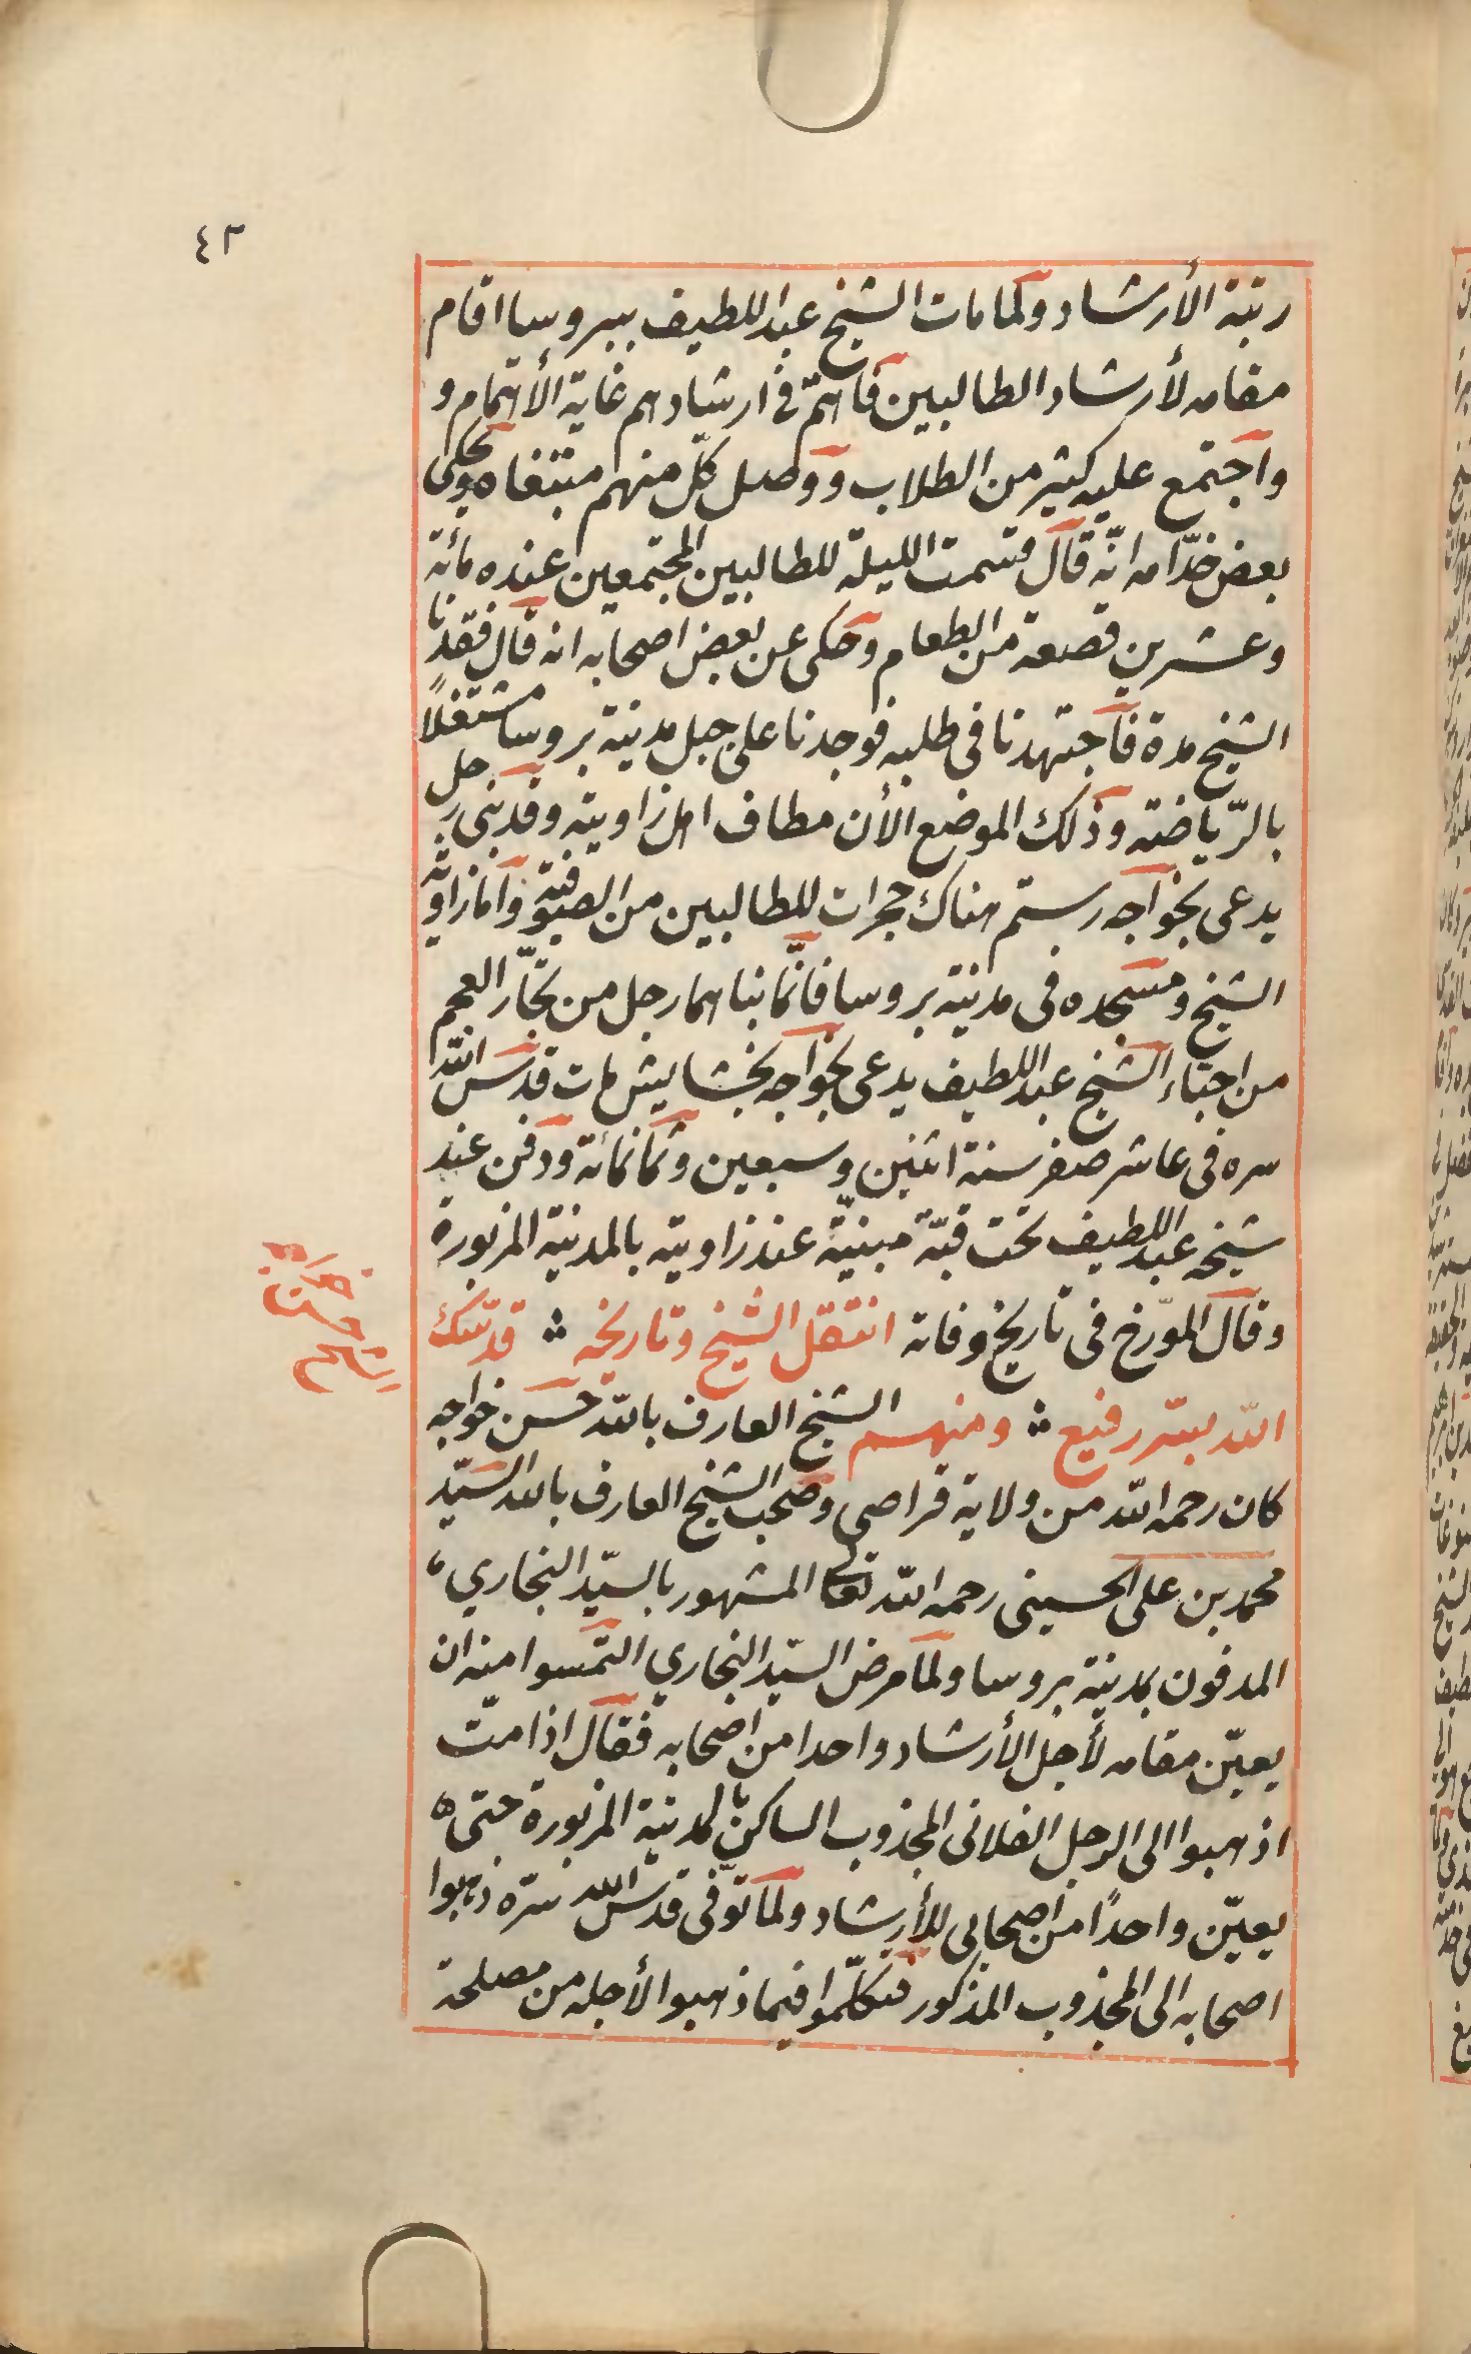 ٤٣
رتبة الأرشاد ولما مات الشيخ عبد اللطيف ببروسا اقام
مقامه لأرشاد الطالبين فاهتمّ في ارشادهم غاية الأهتمام و
واجتمع عليه كثير من الطلاب ووصل كلّ منهم مبتغاه وحكى
بعض خدّامه انّه قال قسمت الليلة للطالبين المجتمعين عنده مأئة
وعشرين قصعة من الطعام وحكى عن بعض اصحابه انه قال فقدنا
الشيخ مدة فاجتهدنا في طلبه فوجدنا على جبل مدينة بروسا مشتغلًا
بالرّياضته وذلك الموضع الأن مطاف اهل زاويته وقد بنى رجل
يدعى بخواجه رستم هناك حجرات للطالبين من الصوفيّة وامّا زاوية
الشيخ ومسجده في مدينة بروسا فانّما بناهما رجل من تجّار العجم
من احبّاء الشيخ عبد اللطيف يدعى بخواجه بخشايش مات قدّس الله
سره في عاشر صفر سنة اثنين وسبعين وثمانمائة ودفن عند
شيخه عبد اللطيف تحت قبّة مبنيّة عند زاويته بالمدينة المزبورة
وقال المورّخ في تاريخ وفاته انتقل الشيخ وتاريخه ؞ قدّسك
الله بسّر رفيع ؞ ومنهم الشيخ العارف بالله حسن خواجه
كان رحمه الله من ولاية قراصي وصحب الشيخ العارف بالله السيّد
محمد بن على الحسينى رحمه الله تعالى المشهور بالسيّد البخاري،
المدفون بمدينة بروسا ولما مرض السيّد البخاري التمسوا منه ان
يعيّن مقامه لأجل الأرشاد واحدا من اصحابه فقال اذا متّ
اذهبوا الى الرجل الفلانى المجذوب الساكن بالمدينة المزبورة حتى ه
يعيّن واحدًا من اصحابى للأرشاد ولما توفّى قدّس الله سرّه ذهبوا
اصحابه الى المجذوب المذكور فتكلّموا فيما ذهبوا لأجله من مصلحة
خواجه
حسن